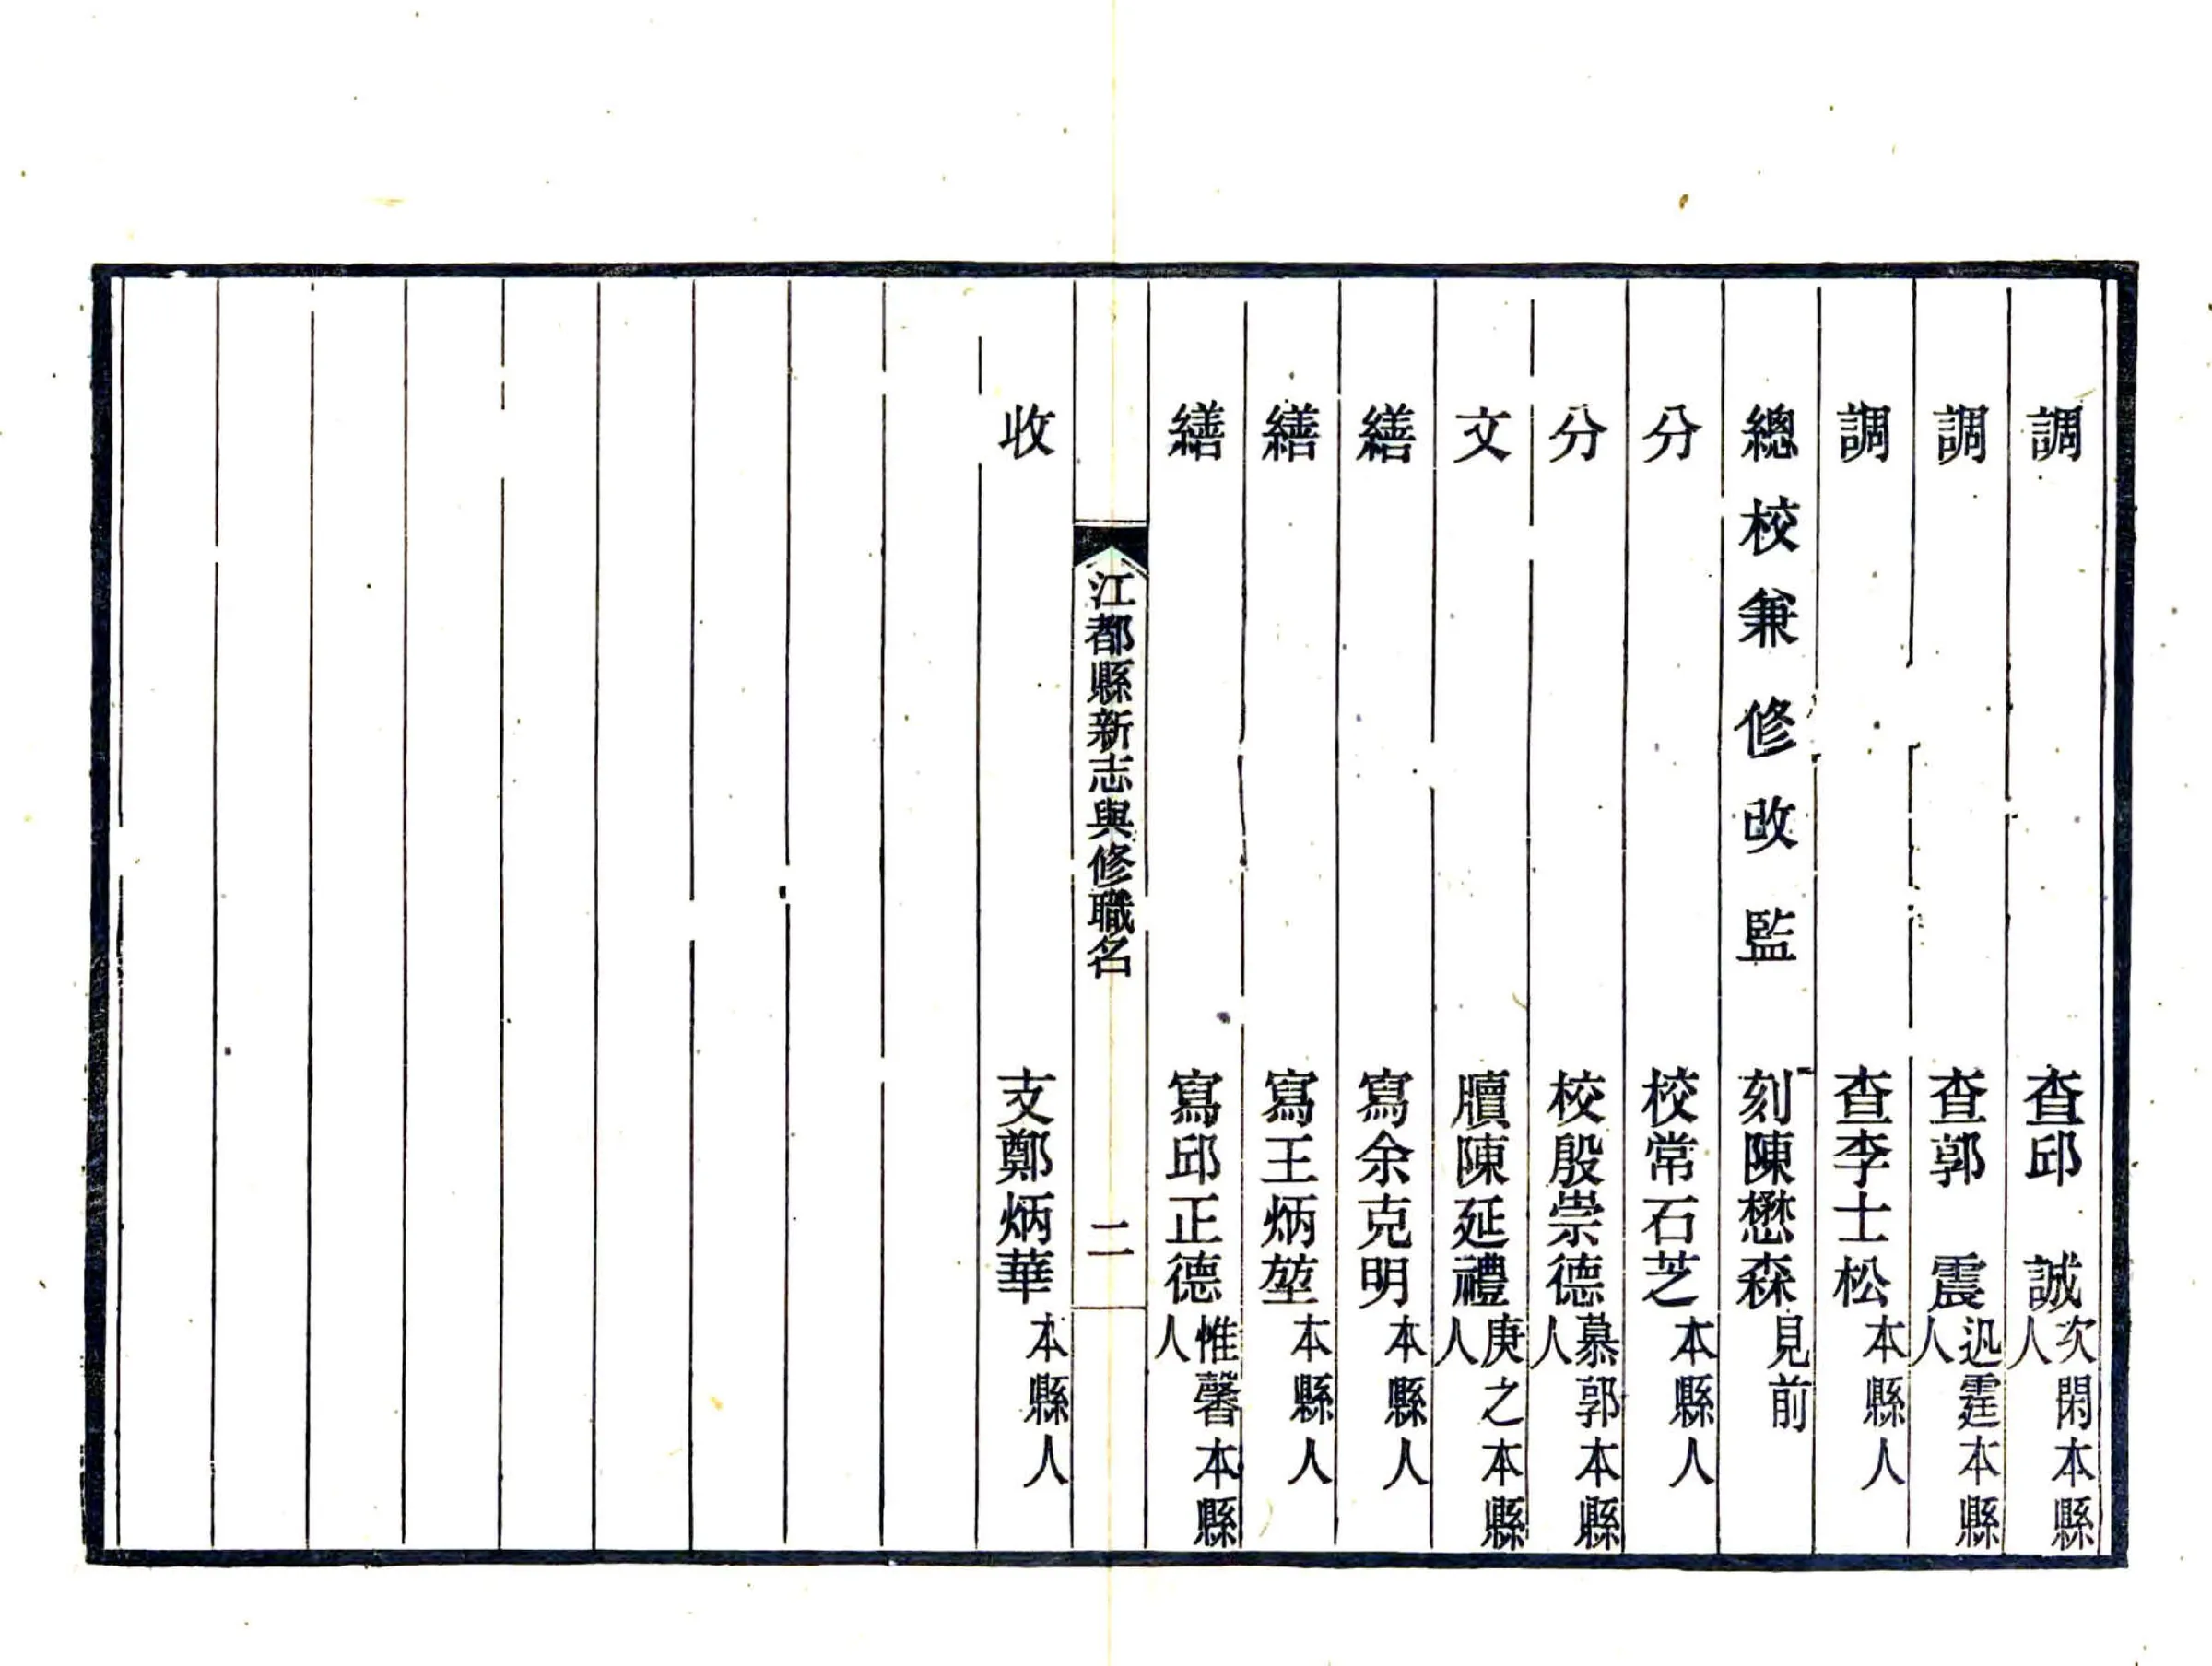 調查邱誠次閑本縣人
調查郭震迅霆本縣人
調查李士松本縣人
總校兼修改監刻陳懋森見前
分校常石芝本縣人
分校殷崇德慕郭本縣人
文牘陳延禮庚之本縣人
繕寫余克明本縣人
繕寫王炳堃本縣人
繕寫邱正德惟馨本縣人
江都縣新志與修職名 二
收支鄭炳華本縣人